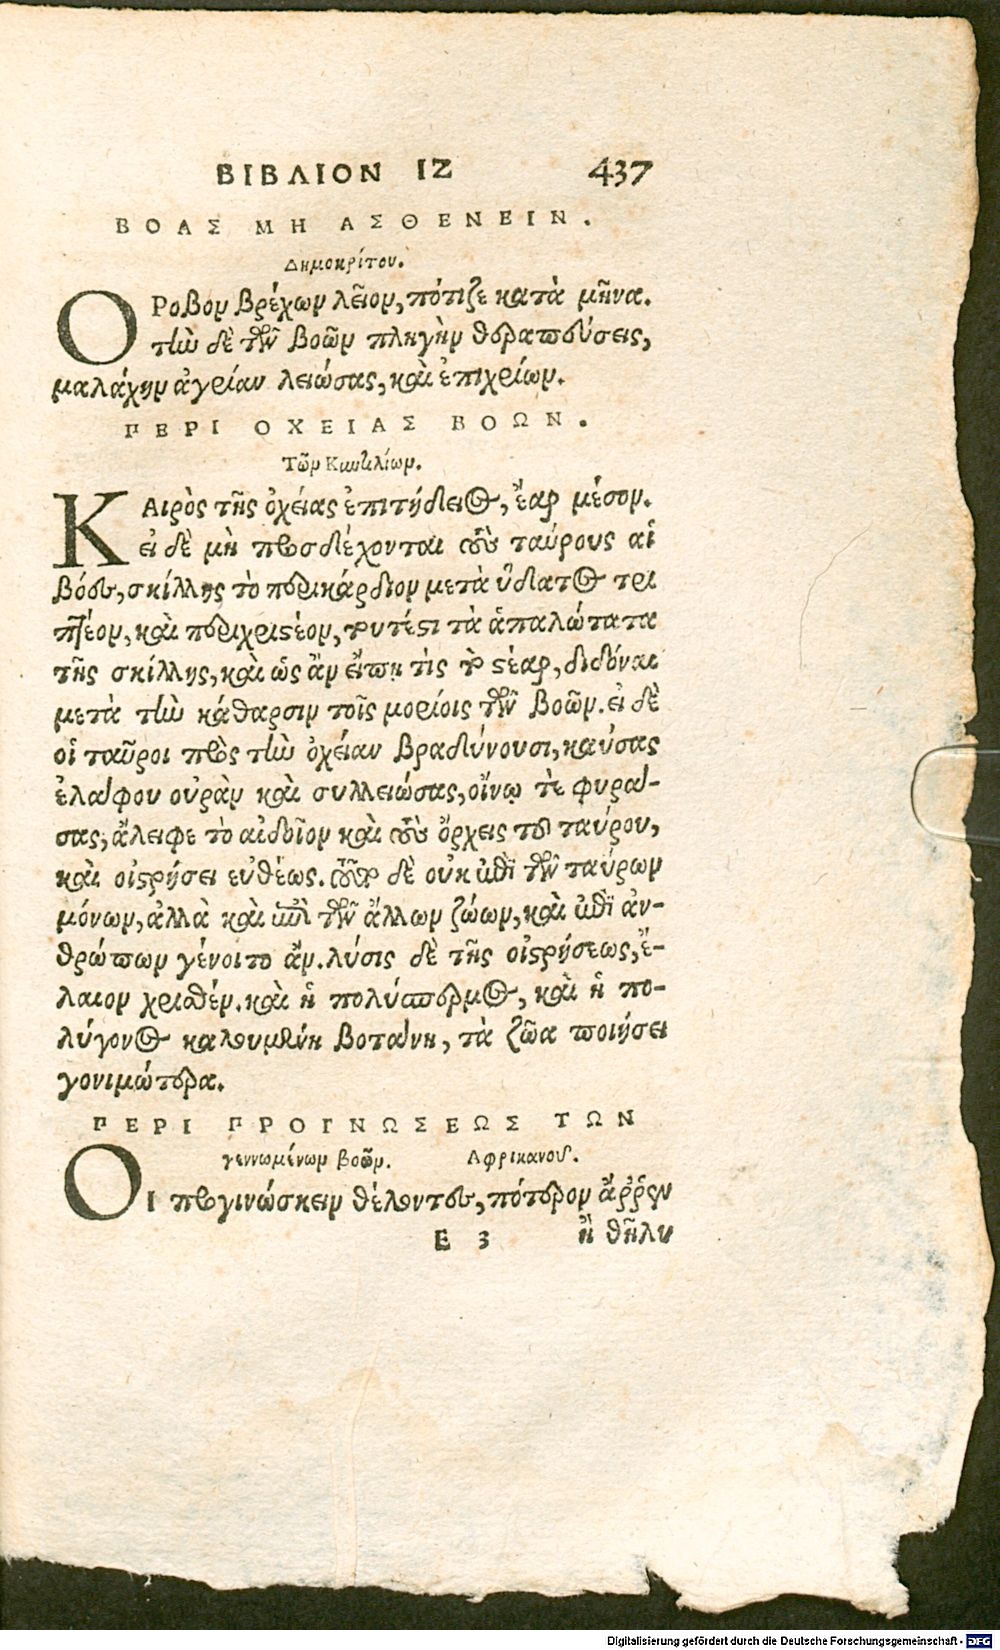 ΒΙΒΛΙΟΝ ΙΖ 437
ΒΟΑΣ ΜΗ ΑΣΘΕΝΕΙΝ.
Δημοκρίτου.
ΟΡοβον βρέχων λεῖον, πότιζε κατὰ μῆνα.
τὴν δὲ τῶν βοῶν πληγὴν θεραπεύσεις,
μαλάχην ἀγρίαν λειώσας, καὶ ἐπιχρίων.
ΠΕΡΙ ΟΧΕΙΑΣ ΒΟΩΝ.
Τῶν Κυντιλίων.
ΚΑιρὸς τῆς ὀχείας ἐπιτήδειος, ἔαρ μέσον.
εἰ δὲ μὴ προσδέχονται τοὺς ταύρους αἱ
βόες, σκίλλης τὸ περικάρδιον μετὰ ὕδατος τρι
πτέον, καὶ περιχριστέον, τουτέστι τὰ ἁπαλώτατα
τῆς σκίλλης, καὶ ὡς ἂν εἴπῃ τὶς τὸ στέαρ, διδόναι
μετὰ τὴν κάθαρσιν τοῖς μορίοις τῶν βοῶν. εἰ δὲ
οἱ ταῦροι πρὸς τὴν ὀχείαν βραδύνουσι, καύσας
ἐλάφου οὐρὰν καὶ συλλειώσας, οἴνῳ τὲ φυρά-
σας, ἄλειφε τὸ αἰδοῖον καὶ τοὺς ὄρχεις τοῦ ταύρου,
καὶ οἰστρήσει εὐθέως. τοῦτο δὲ οὐκ ἐπὶ τῶν ταύρων
μόνων, ἀλλὰ καὶ ἐπὶ τῶν ἄλλων ζώων, καὶ ἐπὶ ἀν-
θρώπων γένοιτο ἄν. λύσις δὲ τῆς οἰστρήσεως, ἔ-
λαιον χρισθέν. καὶ ἡ πολύσπερμος, καὶ ἡ πο-
λύγονος καλουμένη βοτάνη, τὰ ζῶα ποιήσει
γονιμώτερα.
ΠΕΡΙ ΠΡΟΓΝΩΣΕΩΣ ΤΩΝ
γεννωμένων βοῶν. Αφρικανοῦ.
ΟΙ προγινώσκειν θέλοντες, πότερον ἄῤῥεν
E 3 ἢ θῆλυ
Digitalisierung gefördert durch die Deutsche Forschungsgemeinschaft - DFG